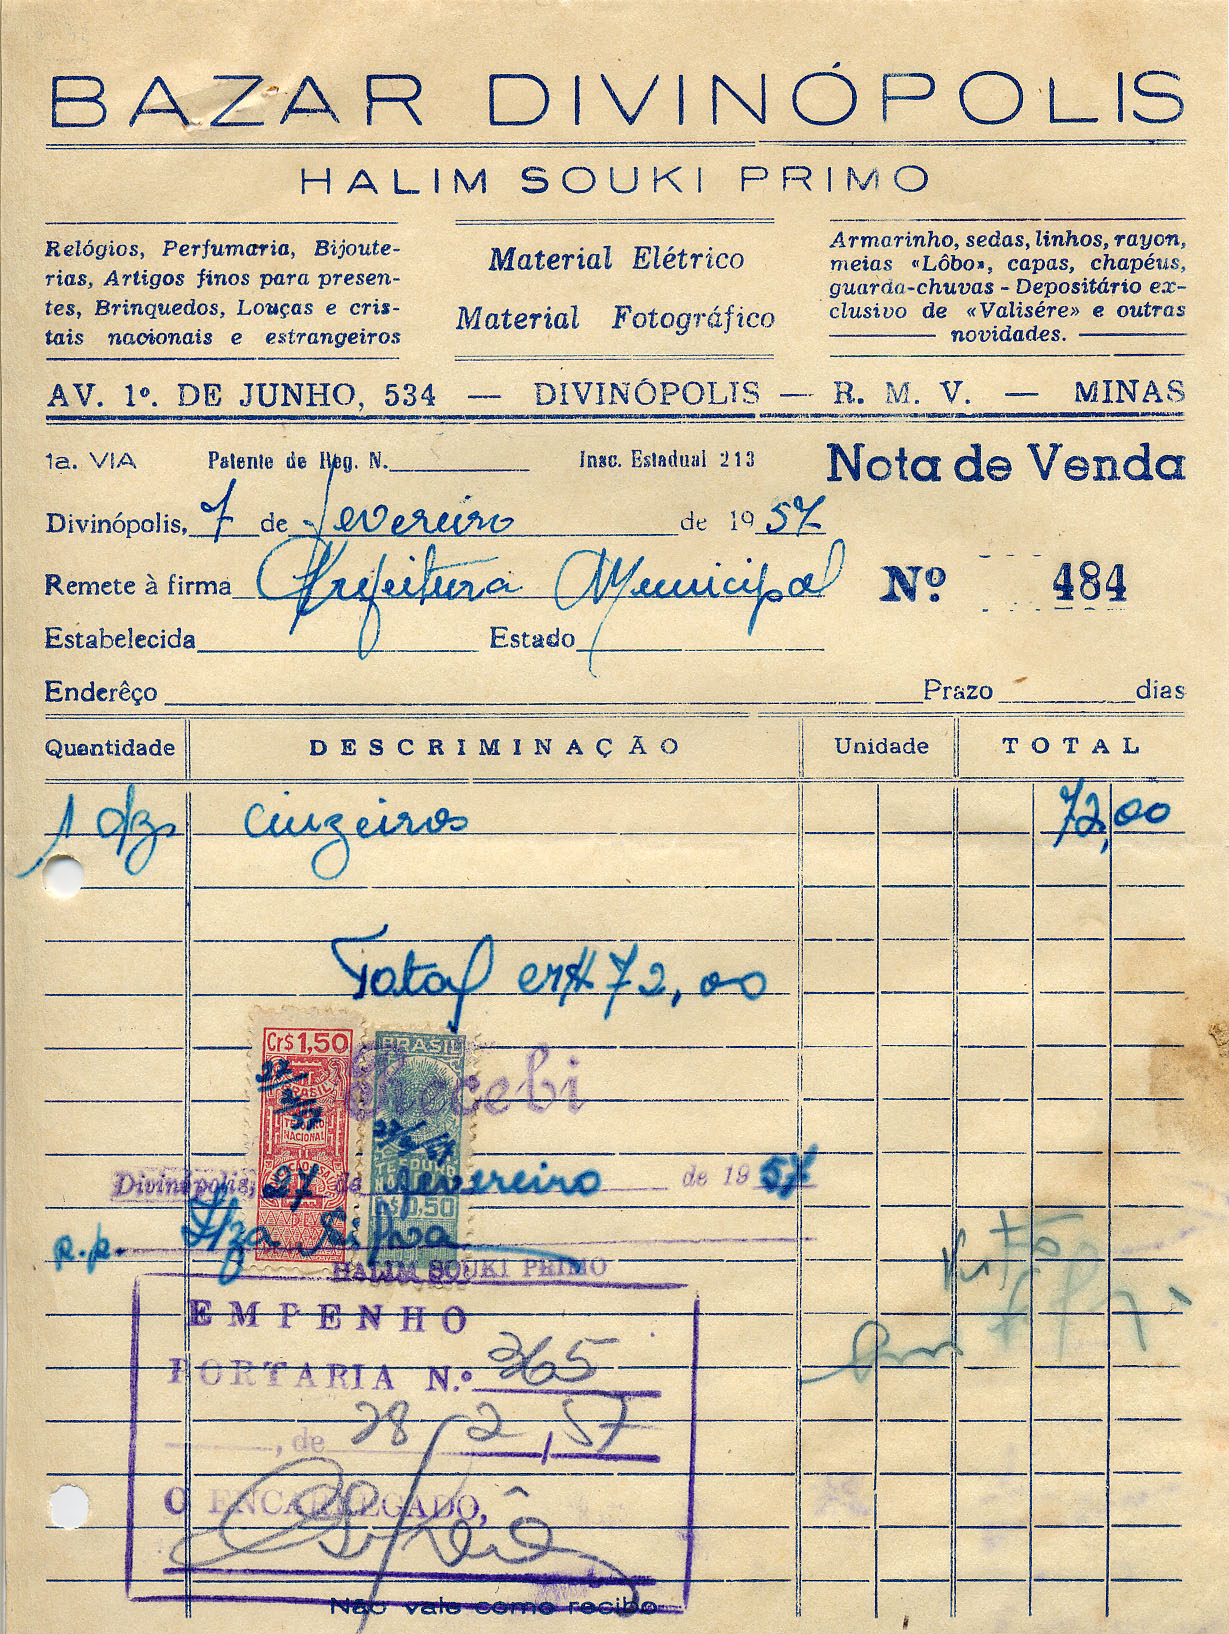 BAZAR DIVINÓPOLIS
HALIM SOUKI PRIMO
Relógios, Perfumaria, Bijoute-
rias, Artigos finos para presen-
tes, Brinquedos, Louças e cris-
tais nacionais e estrangeiros
Material Elétrico
Material Fotográfico
Armarinho, sedas, linhos, rayon,
meias «Lôbo», capas, chapéus,
guarda-chuvas - Depositário ex-
clusivo de «Valisére» e outras
novidades.
AV. 1º. DE JUNHO, 534 — DIVINÓPOLIS — R. M. V. — MINAS
1a. VIA Patente de Reg. N. Insc. Estadual 213 Nota de Venda
Divinópolis, 7 de fevereiro de 1957
Remete à firma Prefeitura Municipal Nº 484
Estabelecida Estado
Enderêço Prazo dias
Quantidade DESCRIMINAÇÃO Unidade TOTAL
1 dz cinzeiros 72,00
Total cr$ 72,00
Cr$ 1,50 BRASIL
BRASIL TESOURO NACIONAL
Recebi
27/2/57 27/2/57
Divinópolis, 27 de fevereiro de 1957
p.p. Ilza Silva
HALIM SOUKI PRIMO
EMPENHO
PORTARIA N.º 365
, de 28/2/57
O ENCARREGADO,
Não vale como recibo